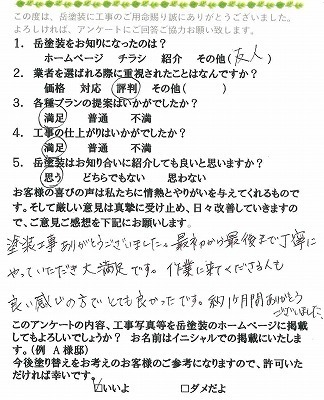 この度は、岳塗装に工事のご用命賜り誠にありがとうございました。
よろしければ、アンケートにご回答ご協力お願い致します。
1. 岳塗装をお知りになったのは?
ホームページ チラシ 紹介 その他(友人)
2. 業者を選ばれる際に重視されたことはなんですか?
価格 対応 評判 その他( )
3. 各種プランの提案はいかがでしたか?
満足 普通 不満
4. 工事の仕上がりはいかがでしたか?
満足 普通 不満
5. 岳塗装はお知り合いに紹介しても良いと思いますか?
思う どちらでもない 思わない
お客様の喜びの声は私たちに情熱とやりがいを与えてくれるもので
す。そして厳しい意見は真摯に受け止め、日々改善していきますの
で、ご意見ご感想を下記にお願いします。
塗装工事ありがとうございました。最初から最後まで丁寧に
やっていただき大満足です。作業に来てくださる人も
良い感じの方でとても良かったです。約1ヶ月間ありがとう
ございました。
このアンケートの内容、工事写真等を岳塗装のホームページに掲載
してもよろしいでしょうか? お名前はイニシャルでの掲載にいたしま
す。(例 A様邸)
今後塗り替えをお考えのお客様のご参考になりますので、許可いた
だければ幸いです。
☑いいよ □ダメだよ